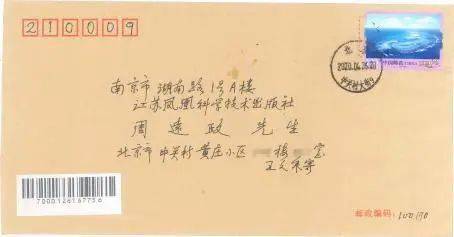 210009
中国邮政 CHINA
2020.04.26.20
南京市湖南路1号A楼
江苏凤凰科学技术出版社
周远政先生
北京市中关村黄庄小区 楼 室
7000126167756
邮政编码：100190